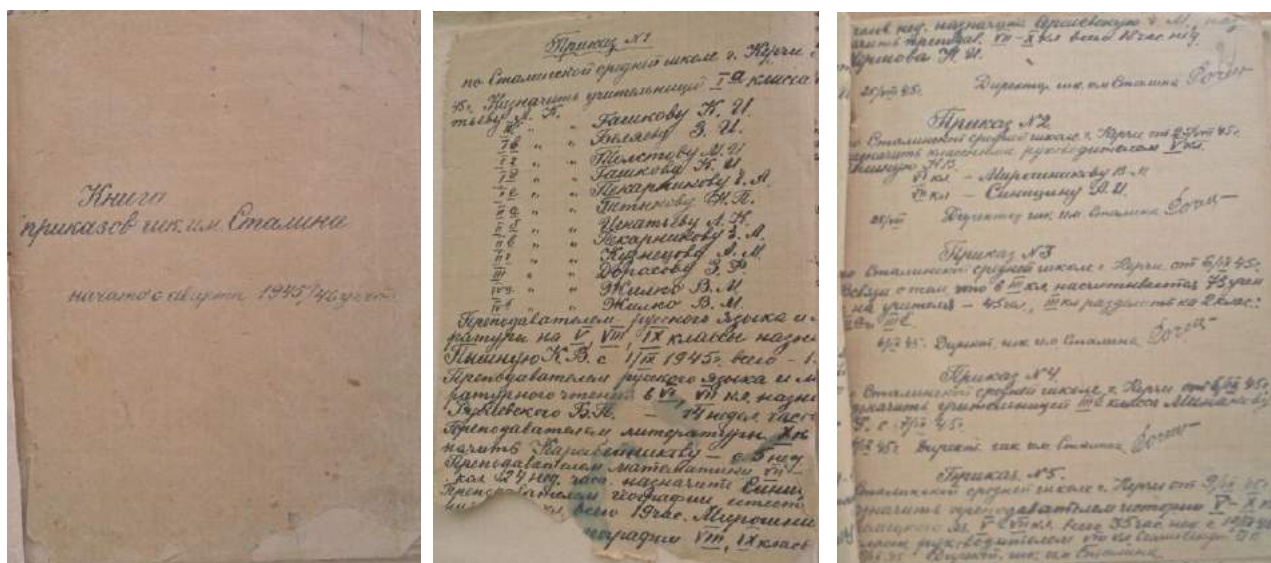 Книга
приказов шк. им. Сталина
начато с августа 1945/46 уч. год
Приказ №1
по Сталинской средней школе г. Керчи
45г. Назначить учительницей I а класса
тьеву Л. К.
" " Гашкову К. И.
" " Беляеву З. И.
" " Толстову М. И.
" " Гашкову К. И.
" " Пекарникову Е. А.
" " Игнатьеву Л. К.
" " Пекарникову Е. А.
" " Кузнецову А. М.
" " Жилко В. М.
" " Жилко В. М.
Преподавателем русского языка и
ратуры на V, VIII, IX классы назн
Пышную К. В. с 1/IX 1945г. всего – 1
Преподавателем русского языка и ли
ратурного чтения в VI, VII кл. назн
Б. П. – 14 недел. часо
Преподавателем литературы X кл
начить – с 5 нед
Преподавателем математики VII
кл 24 нед. часа назначить Синиц
Преподавателем географии естест
кл. всего 19 час. Мирошни
географии VIII, IX класс
нед. назначить
препод. VIII–X кл всего 18 час нед.
Н. И.
25/VIII 45г. Директор шк. им Сталина
Приказ №2
Сталинской средней школе г. Керчи от 25/VIII 45г.
назначить классным руководителем V кл.
Пышную К. В.
VI кл – Мирошникову В. М.
VII кл – Синицину А. И.
25/VIII Директор шк. им Сталина
Приказ №3
Сталинской средней школе г. Керчи от 6/IX 45г.
В связи с тем что в III кл насчитывается 73 учен
на учителя – 45 чел, III кл разделить на 2 клас:
III а и III б
6/IX 45г. Директ. шк. им Сталина
Приказ №4.
Сталинской средней школе г. Керчи от 6/IX 45г.
назначить учительницей III б класса Минакову
с 7/IX 45г.
6/IX 45г Директ. шк им Сталина
Приказ №5.
Сталинской средней школе г. Керчи от 9/IX 45г
назначить преподавателем истории V–X кл
V–VII кл. всего 35 час нед. с 10/IX 45
классн руководителем VIII кл
Директ. шк. им Сталина